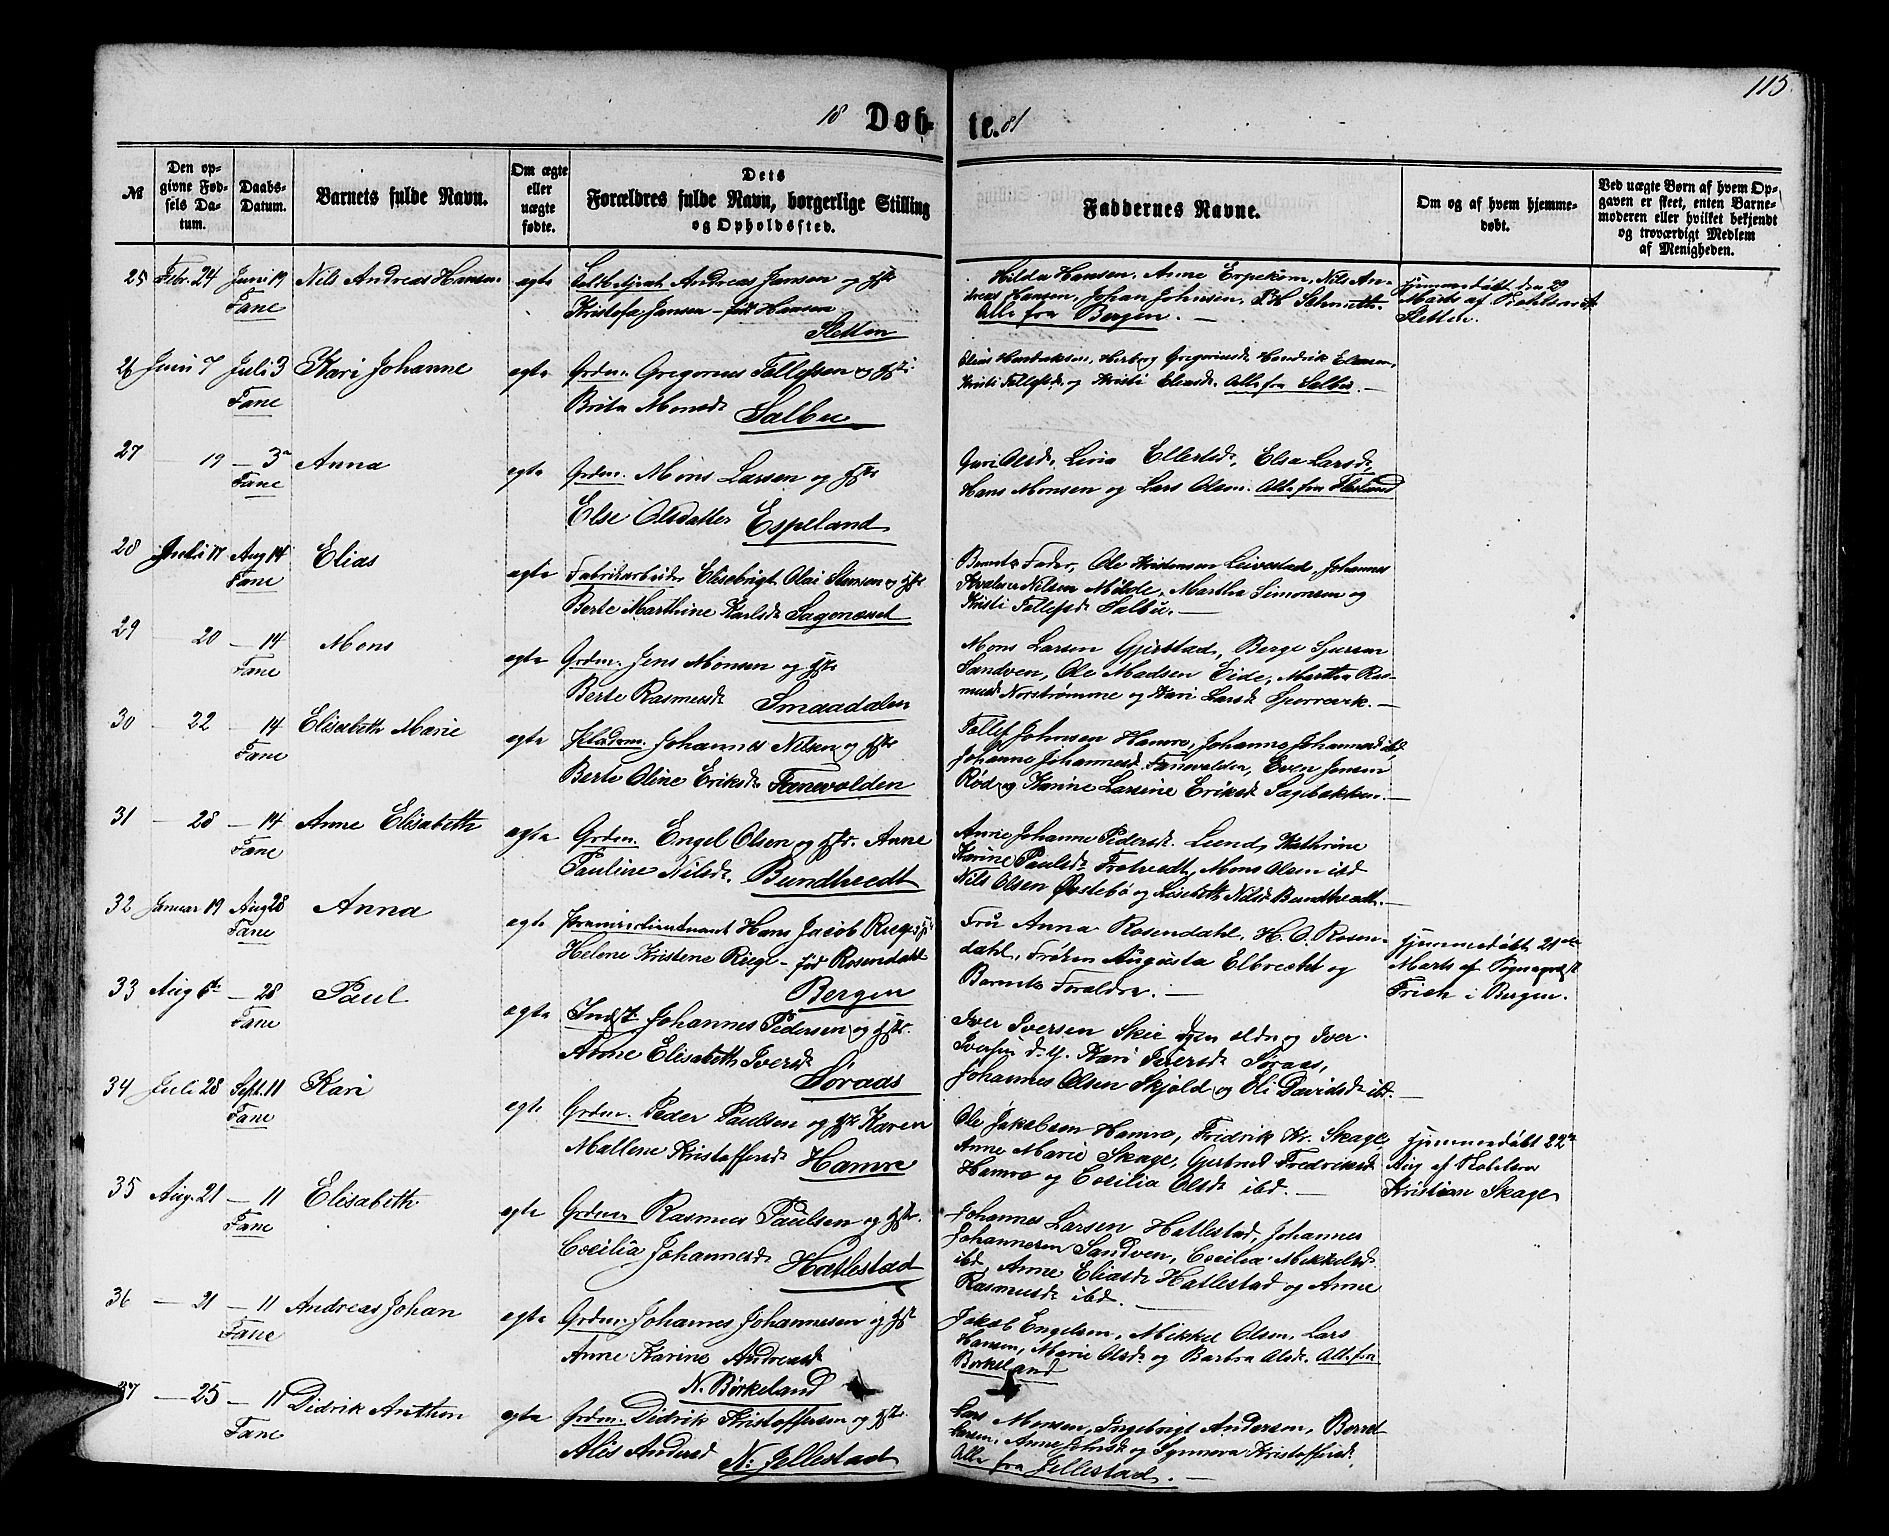 115.
18 Døb- te. 81
№
Den op-
givne Fød-
sels Da-
tum.
Daabs-
Datum.
Barnets fulde Navn.
Om ægte
eller
uægte
fødte.
Dets
Forældres fulde Navn, borgerlige Stilling
og Opholdssted.
Faddernes Navne.
Om og af hvem hjemme-
døbt.
Ved uægte Børn af hvem Op-
gaven er skeet, enten Barne-
moderen eller hvilket bekjendt
og troværdigt Medlem
af Menigheden.
25 Febr. 24 Juni 19 Nils Andreas Hansen. egte Andreas Jansen og Hst
Fane
Kristofa Jansen – fød Hansen
Sletten
Hilda Hansen. Anne Erpekom, Nils An-
dreas Hansen, Johan Johnsen,
Alle fra Bergen. –
Hjemmedøbt den 29
Marts af
Sletten.
26 Juni 7 Juli 3 Kari Johanne egte Grdm. Gregorius Tollefsen og Hst:
Fane
Brita Monsd. Salbu
Elias Herbrksen, Herborg Gregoriusd. Hendrik Eliasen,
Kristi Tollefsd. og Kristi Eliasd. Alle fra Salbu. –
27 – 19 – 3 Anna egte Grdm. Mons Larsen og Hst
Fane
Else Olsdatter Espeland
Guri Olsd., Lina Ellertsd., Elsa Larsd,
Hans Monsen og Lars Olsen. Alle fra Flesland
28 Juli 17 Aug 14 Elias egte Fabrikarbeider Elisebrigt Olai Stensen og Hst
Fane
Berte Marthine Karlsd. Sagenæset
Barnets Fader, Ole Kristensen Leivestad, Johannes
Nilsen Milde, Martha Simonsen og
Kristi Tollefsd. Salbu. –
29 – 20 – 14 Mons egte Grdm. Jens Monsen og Hst
Fane
Berte Rasmusd. Smaadalen
Mons Larsen Gjerstad, Berge
Sandven, Ole Madsen Eide, Martha Ras-
musd. Norstrømme og Kari Larsd. Sporrevik. –
30 – 22 – 14 Elisabeth Marie egte Pladsm. Johannes Nilsen og Hst
Fane
Berte Oline Eriksd. Fanevolden
Tollef Johnsen Hamre, Johanne Johannesd. ibd,
Johanne Johannesd. Fanevolden, Even Jensen
Rød og Karine Larsine Eriksd. Sagbakken. –
31 – 28 – 14 Anne Elisabeth egte Grdm. Engel Olsen og Hst. Anne
Fane
Pauline Nilsd. Bundtvedt
Anne Johanne Pedersd. Lund, Kathrine
Karine Paulsd. Trotvedt, Mons Olsen ibd
Nils Olsen Østebø og Lisebeth Nilsd Bundtvedt. –
32 Januar 19 Aug 28 Anna egte Premierlieutnant Hans Jacob Riege og Hst
Fane
Helene Kristene Riege – fød Rosendahl
Bergen
Fru Anna Rosendahl, H. O. Rosen-
dahl, Frøken Augusta Elbrecht og
Barnets Forældre. –
Hjemmedøbt 21de
Marts af Sognepræst
Frich i Bergen.
33 Aug 6te – 28 Paul egte Indst. Johannes Pedersen og Hst.
Fane
Anne Elisabeth Iversd.
Søraas
Iver Iversen Skie den ældre og Iver
Iversen d. y. Kari Iversd. Søraas,
Johannes Olsen Skjold og Eli Davidsd. ibd. –
34 Juli 28 Sept. 11 Kari egte Grdm. Peder Paulsen og Hst. Karen
Fane
Mallene Kristoffersd. Hamre
Ole Jakobsen Hamre, Fridrik Kr. Skage,
Anne Marie Skage, Gertrud Fredriksd.
Hamre og Cecilia Olsd. ibd. –
Hjemmedøbt 22de
Aug af
Kristian Skage
35 Aug. 21 – 11 Elisabeth. egte Grdm. Rasmus Paulsen og Hst.
Fane
Cecilia Johannesd.
Hatlestad
Johannes Larsen Hatlestad, Johannes
Johannesen Sandven, Cecilia Mikkelsd.
ibd, Anne Eliasd. Hatlestad og Anne
Rasmusd. ibd. –
36 – 21 – 11 Andreas Johan egte Grdm. Johannes Johannesen og Hst
Fane
Anne Karine Andreasd.
N. Birkeland
Jakob Engelsen, Mikkel Olsen, Lars
Hansen, Marie Olsd. og Barbra Olsd. Alle fra
Birkeland
37 – 25 – 11 Didrik Anthon egte Grdm. Didrik Kristoffersen og Hst.
Fane
Alis Andersd. N. Jellestad
Lars Monsen, Ingebrigt Andersen, Berret
Larsen, Anne Johnsd. og Synneva Kristoffersd.
Alle fra Jellestad. –